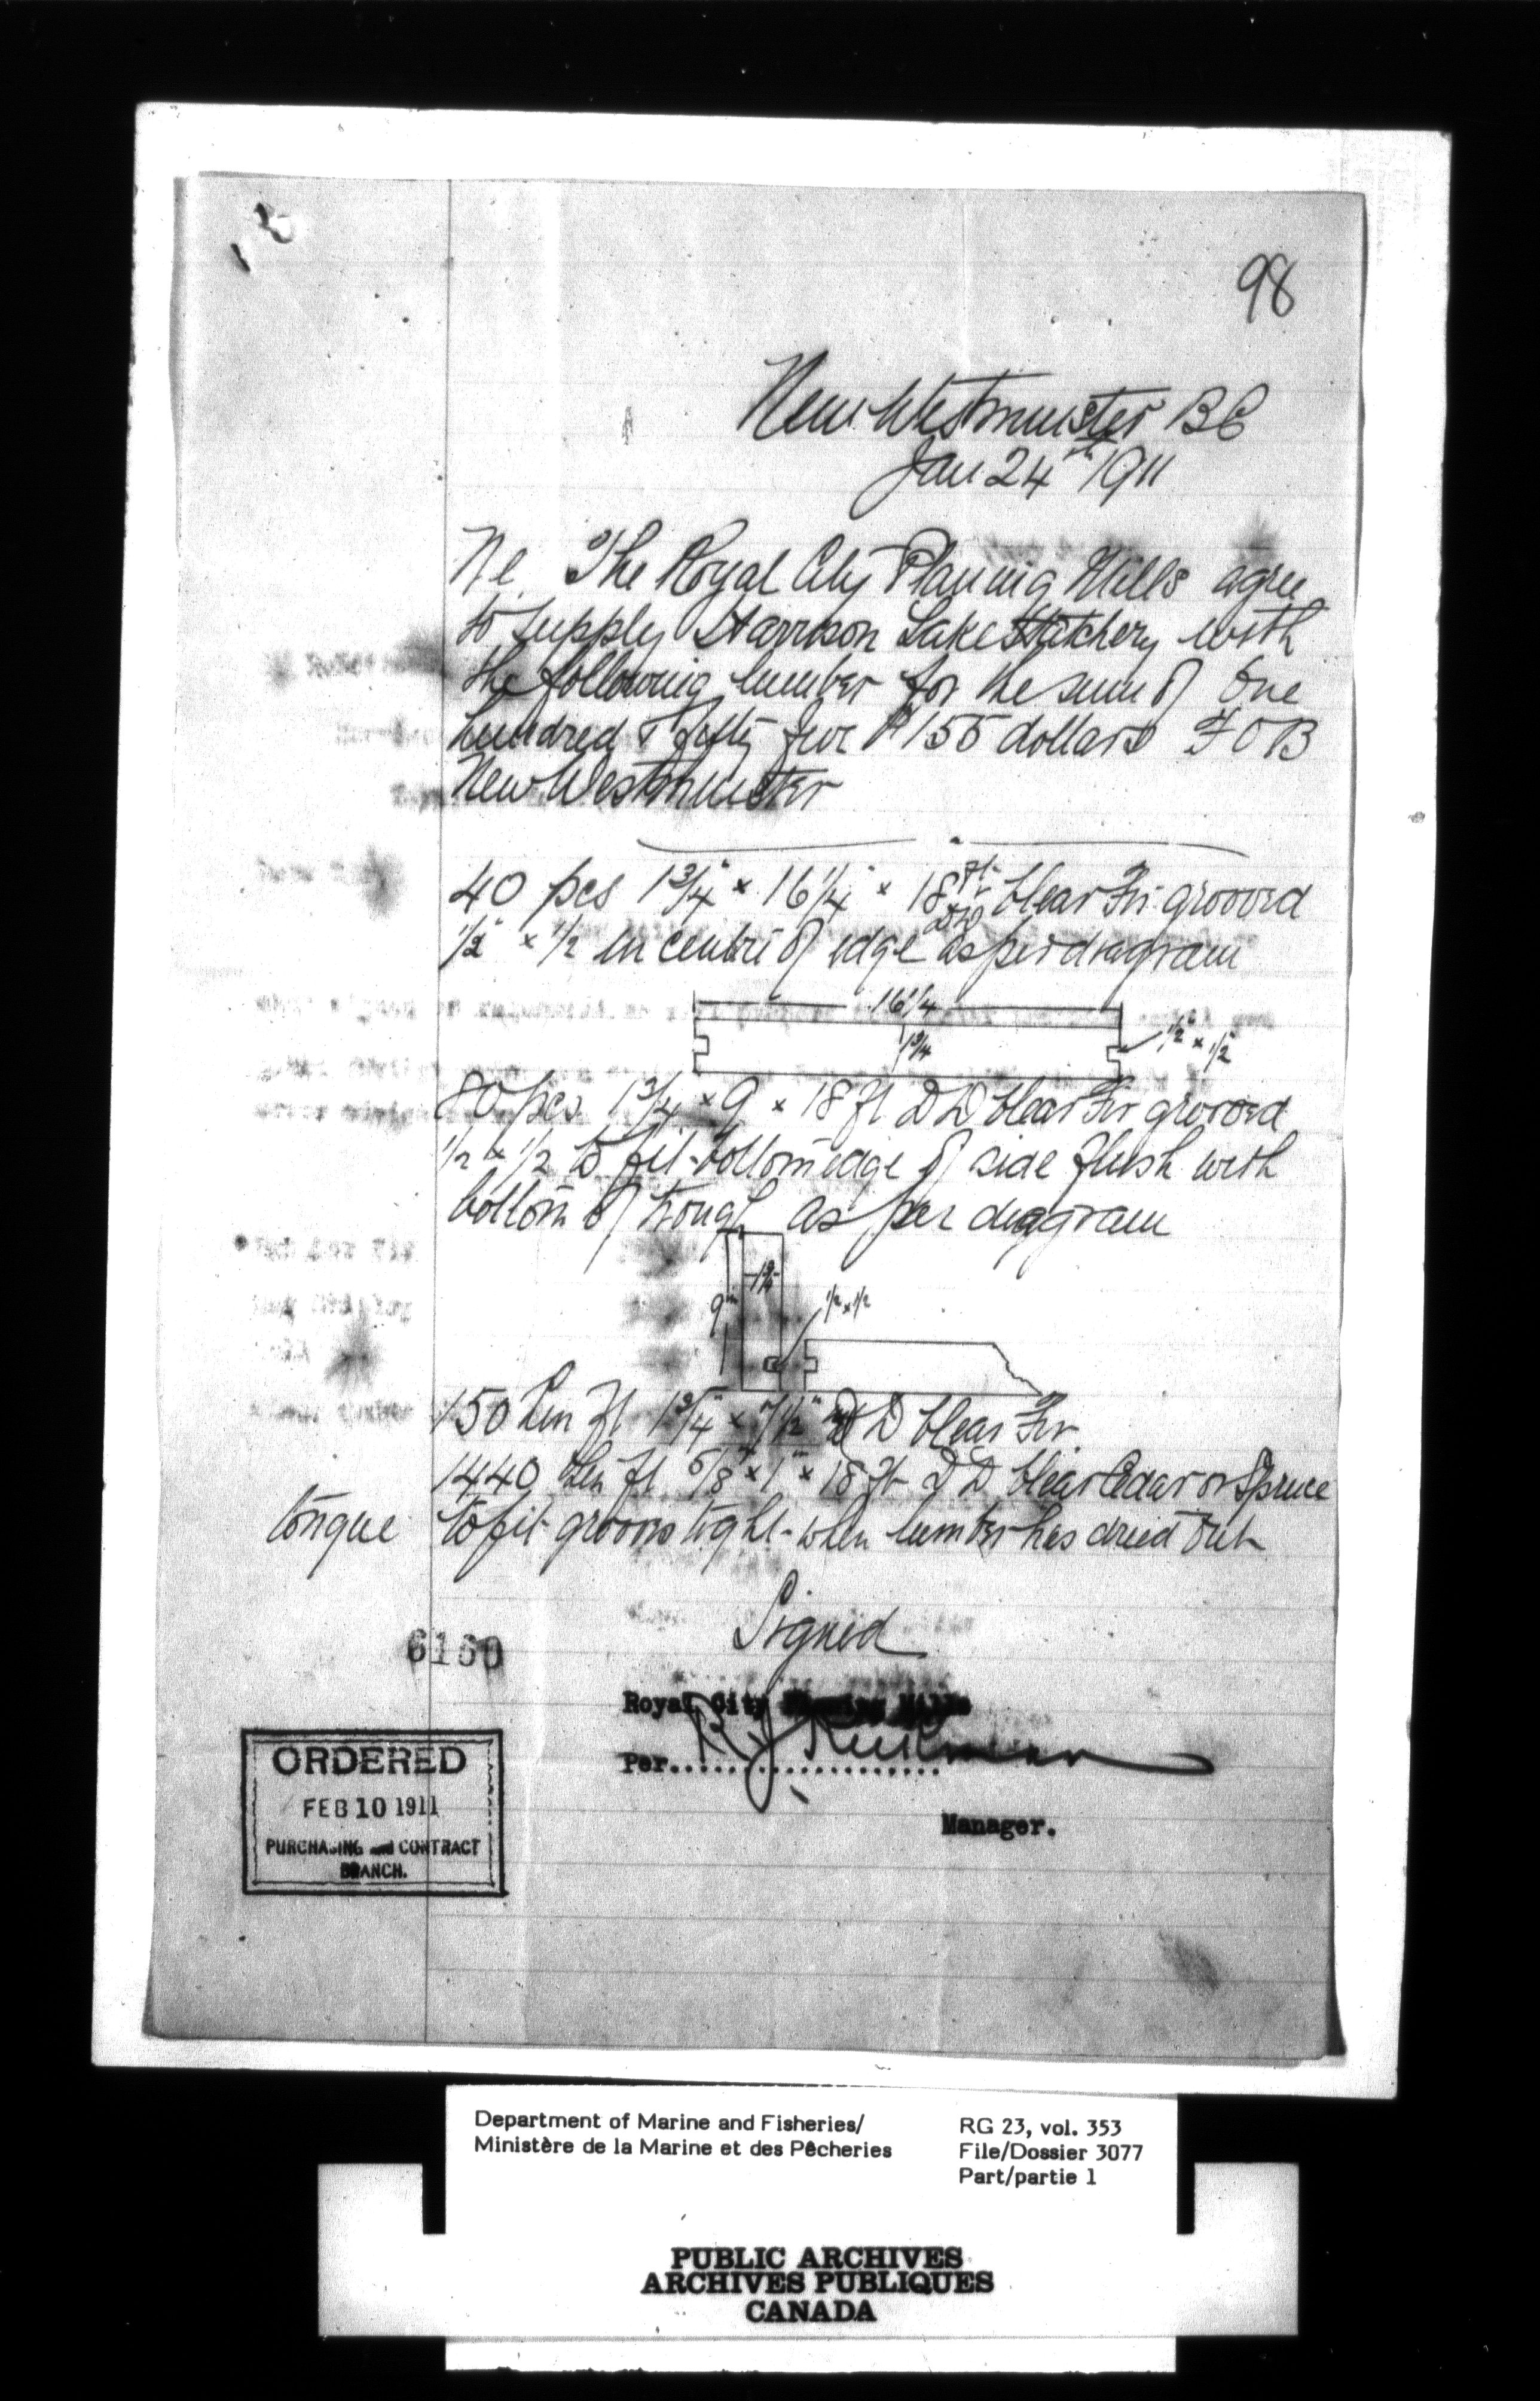 98
New Westminster BC
Jan 24th 1911
We The Royal City Planing Mills agree
to supply Harrison Lake Hatchery with
the following lumber for the sum of One
hundred & fifty five $155 dollars F O B
New Westminster
40 pcs 1 3/4" × 16 1/4" × 18 ft DD Clear Fir grooved
1/2" × 1/2 in centre of edge as per diagram
16 1/4
1 3/4
1/2" × 1/2"
80 pcs 1 3/4 × 9 × 18 ft D D Clear Fir grooved
1/2 × 1/2 to fit bottom edge of side flush with
bottom of trough as per diagram
1 3/4
9"
1/2 × 1/2
150 Lin ft 1 3/4" × 7 1/2" D D Clear Fir
1440 Lin ft 5/8" × 1" × 18 ft D D Clear Cedar or Spruce
tongue to fit grooves tight when lumber has dried out
Signed
6160
Royal City Planing Mills
Per....................
Manager.
ORDERED
FEB 10 1911
PURCHASING and CONTRACT
BRANCH.
Department of Marine and Fisheries/
Ministère de la Marine et des Pêcheries
RG 23, vol. 353
File/Dossier 3077
Part/partie 1
PUBLIC ARCHIVES
ARCHIVES PUBLIQUES
CANADA